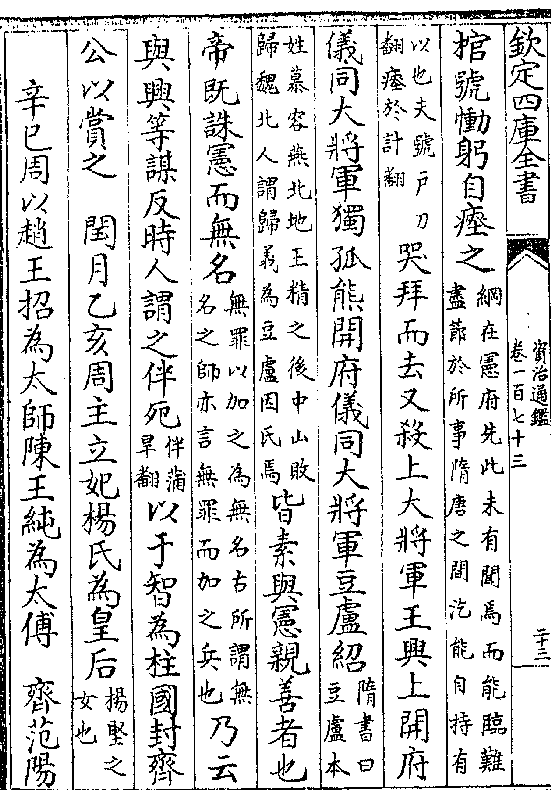 欽定四庫全書
資治通鑑
卷一百七十三
二十三
棺號慟躬自瘞之
綱在憲府先此未有聞焉而能臨難
盡節於所事隋唐之間汔能自持有
以也夫號戸刀
翻瘞於計翻
哭拜而去又殺上大將軍王興上開府
儀同大將軍獨孤熊開府儀同大將軍豆盧紹
隋書曰
豆盧本
姓慕容燕北地王精之後中山敗
歸魏北人謂歸義為豆盧因氏焉
皆素與憲親善者也
帝既誅憲而無名
無罪以加之為無名古所謂無
名之師亦言無罪而加之兵也
乃云
與興等謀反時人謂之伴死
伴蒲
旱翻
以于智為柱國封齊
公以賞之　閏月乙亥周主立妃楊氏為皇后
楊堅之
女也
辛巳周以趙王招為太師陳王純為太傅　齊范陽